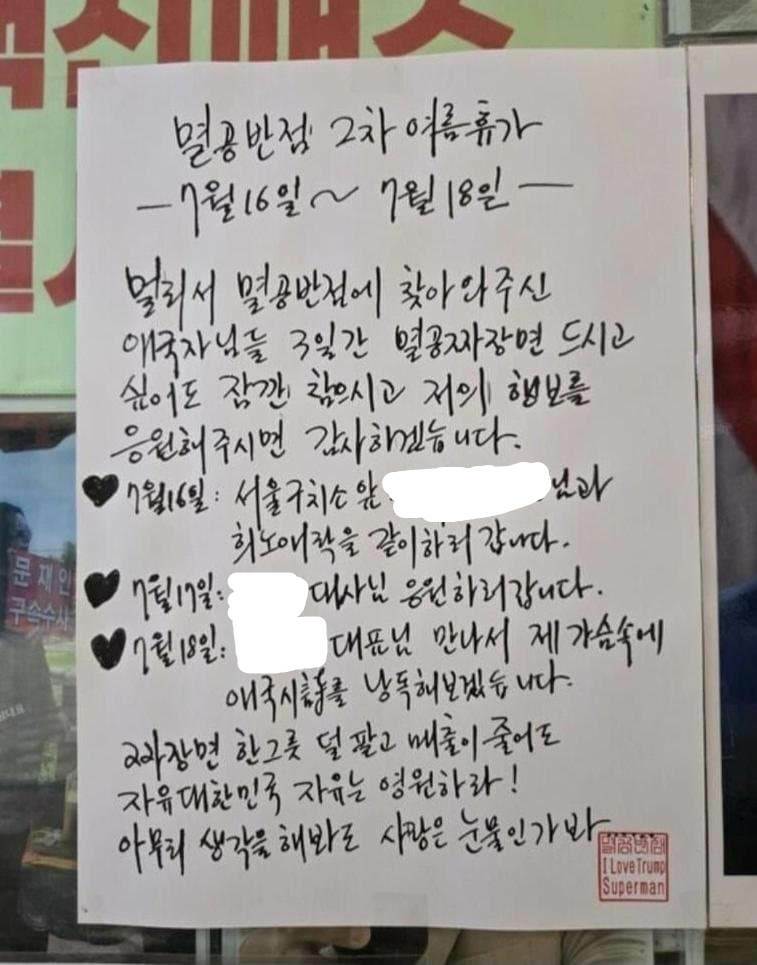 멸공반점 2차 여름휴가
- 7월16일 ~ 7월 18일 -
멀리서 멸공반점에 찾아와주신
애국자님들 3일간 멸공짜장면 드시고
싶어도 잠깐 참으시고 저의 행보를
응원해주시면 감사하겠습니다.
♥ 7월16일: 서울구치소 앞 님과
희노애락을 같이하러 갑니다.
♥ 7월17일: 대사님 응원하러갑니다.
♥ 7월18일: 대표님 만나서 제 가슴속에
애국시詩를 낭독해보겠습니다.
짜장면 한그릇 덜 팔고 매출이 줄어도
자유대한민국 자유는 영원하라!
아무리 생각을 해봐도 사랑은 눈물인가봐
멸공반점
I Love Trump
Superman
문재인
구속수사